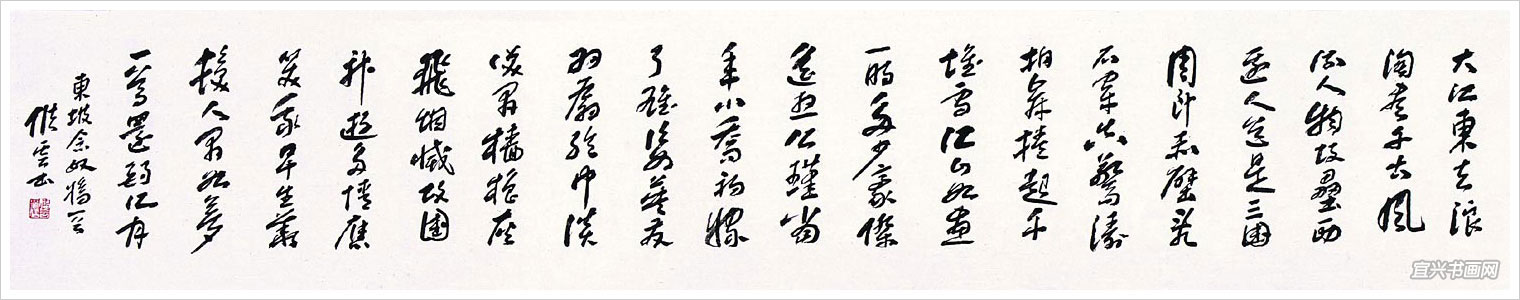 大江東去浪
淘盡千古風
流人物故壘西
邊人道是三國
周郎赤壁亂
石穿空驚濤
拍岸捲起千
堆雪江山如畫
一時多少豪傑
遙想公瑾當
年小喬初嫁
了雄姿英發
羽扇綸巾談
笑間檣櫓灰
飛烟滅故國
神遊多情應
笑我早生華
髮人間如夢
一尊還酹江月
東坡念奴嬌
雲書
宜兴书画网